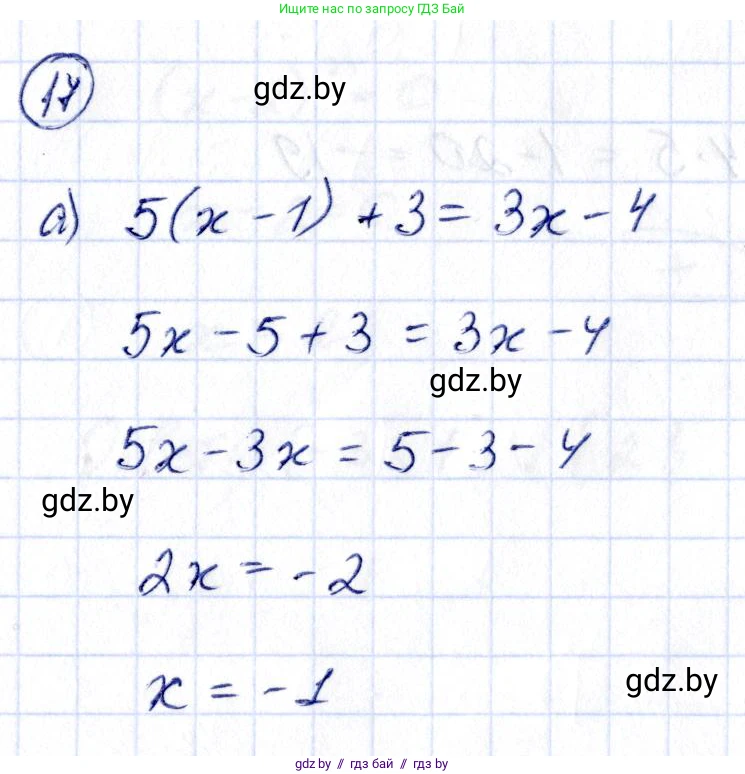 Ищите по запросу ГДЗ Бай
17
gdz.by
а) 5(x - 1) + 3 = 3x - 4
5x - 5 + 3 = 3x - 4
gdz.by
5x - 3x = 5 - 3 - 4
gdz.by
2x = - 2
x = - 1
gdz.by
gdz.by // гдз бай // гдз by